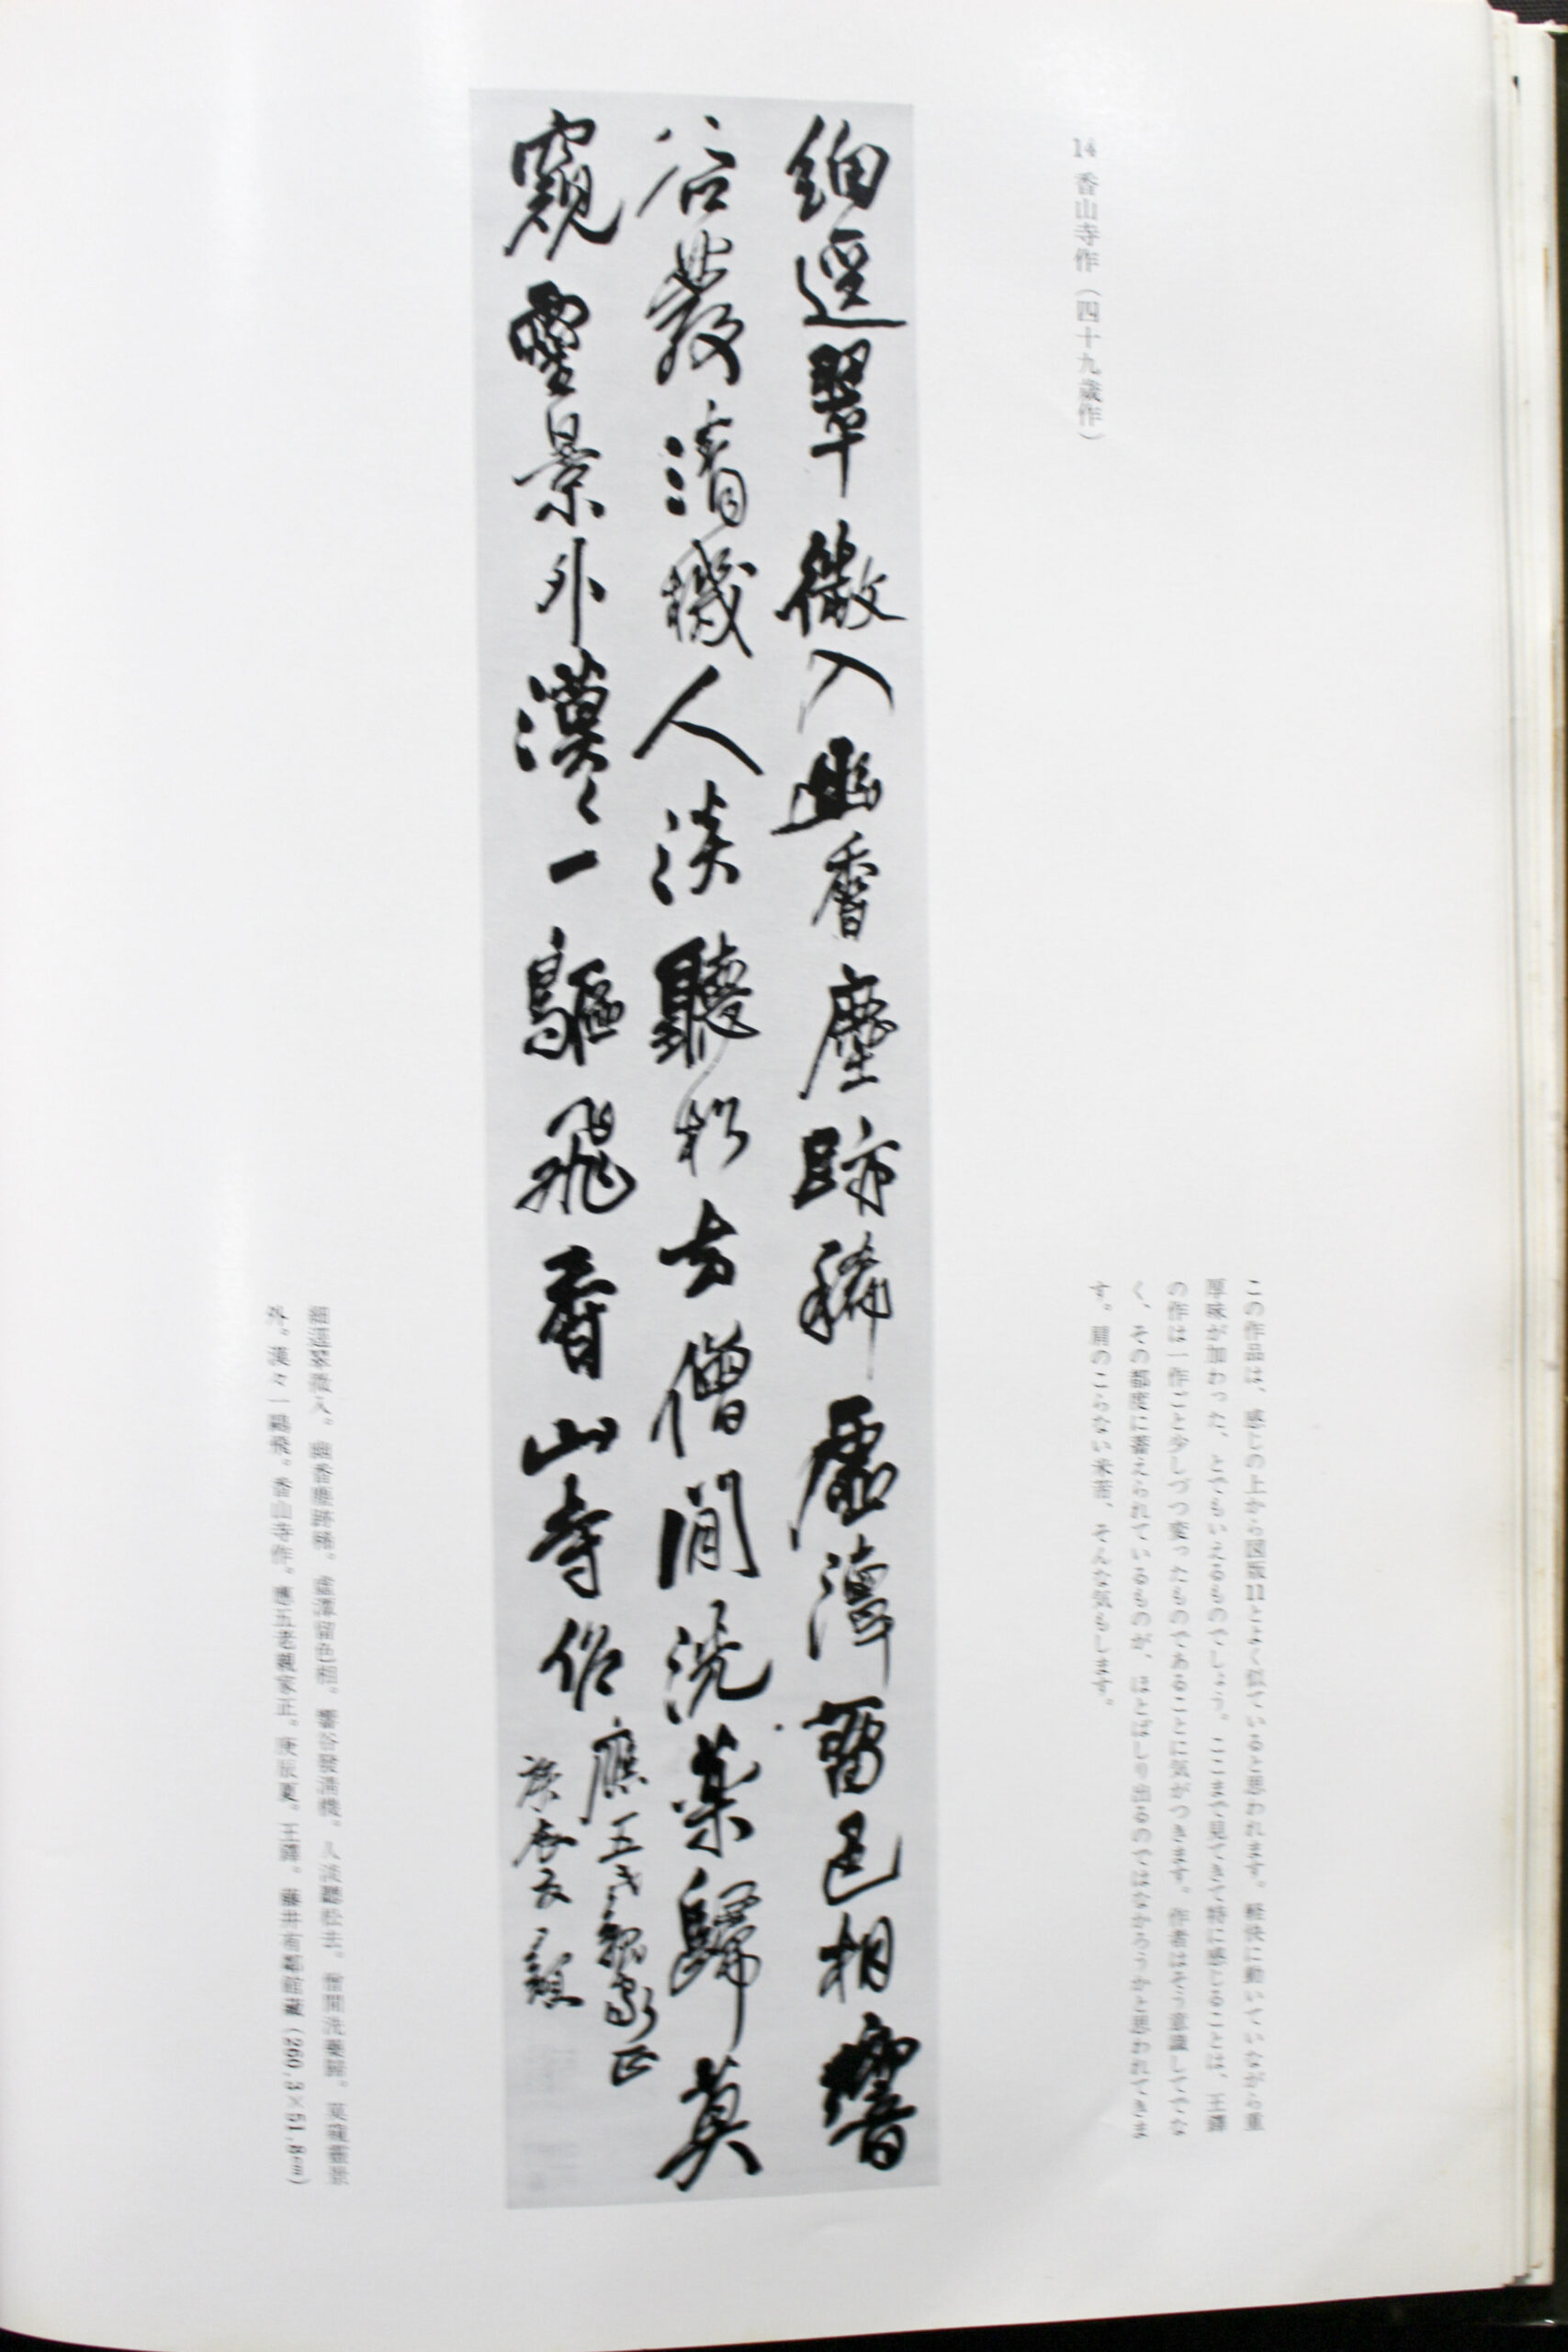 14 香山寺作（四十九歳作）
この作品は、感じの上から図版11とよく似ていると思われます。軽快に動いていながら重
厚味が加わった、とでもいえるものでしょう。ここまで見てきて特に感じることは、王鐸
の作は一作ごと少しづつ変ったものであることに気がつきます。作者はそう意識してでな
く、その都度に蓄えられているものが、ほとばしり出るのではなかろうかと思われてきま
す。肩のこらない米芾、そんな気もします。
細逕翠微入幽香塵跡稀虚潭留色相響
谷發清機人淡聽松去僧閒洗藥歸莫
窺靈景外漠〻一驅飛香山寺作
應五老親家正
庚辰夏王鐸
細逕翠微入。幽香塵跡稀。虚潭留色相。響谷發清機。人淡聽松去。僧閒洗藥歸。莫窺靈景
外。漠々一鷗飛。香山寺作。應五老親家正。庚辰夏。王鐸。藤井有鄰館藏（260.3×51.8cm）